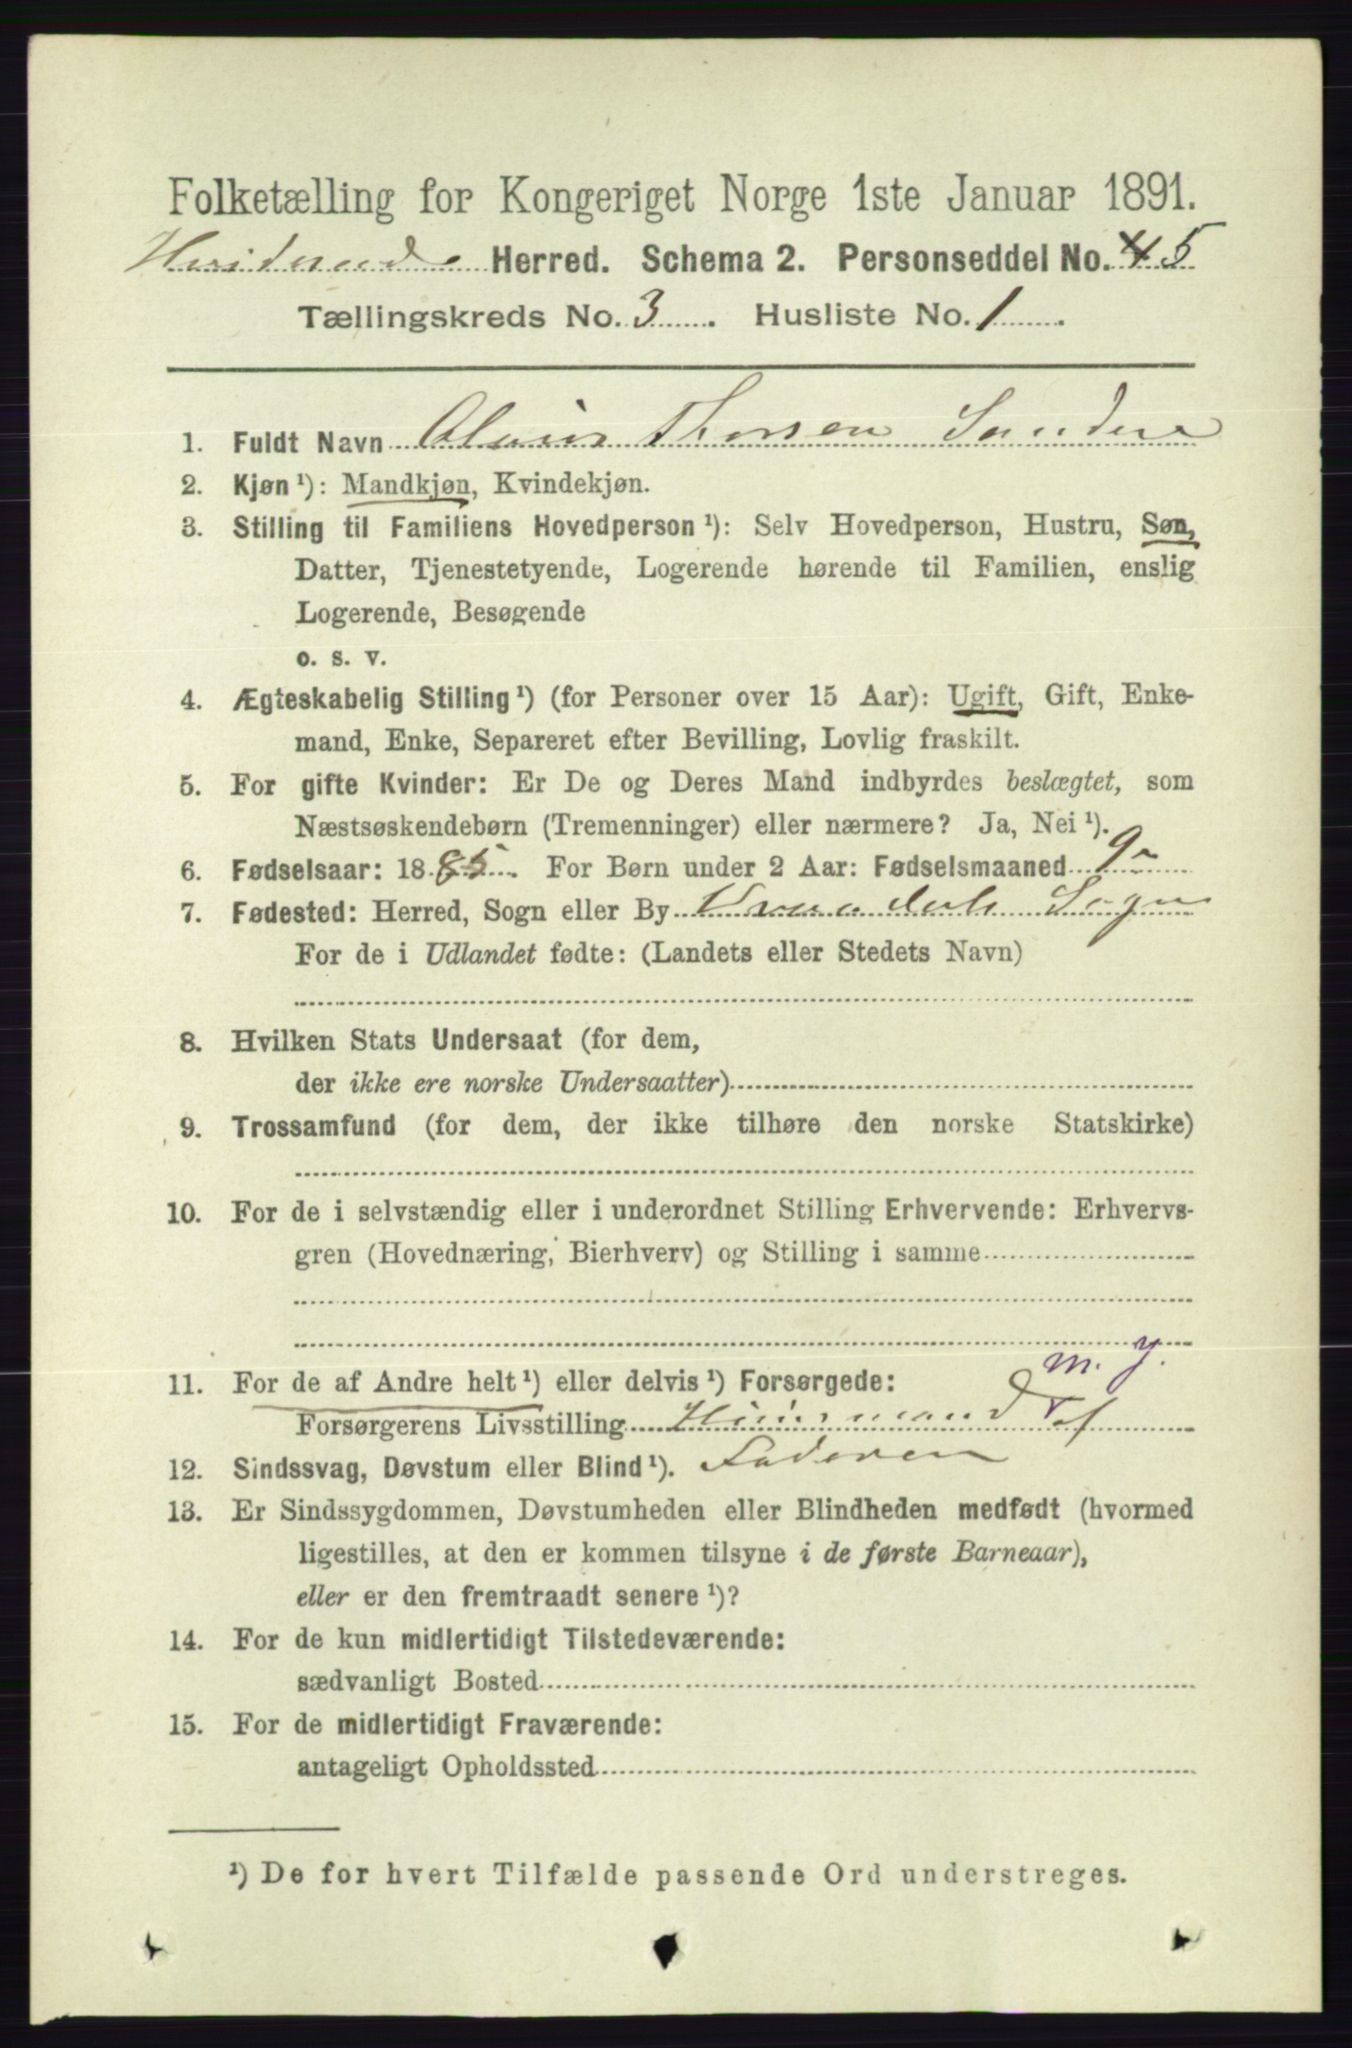 Folketælling for Kongeriget Norge 1ste Januar 1891.
Hviteseid Herred. Schema 2. Personseddel No. 5
Tællingskreds No. 3. Husliste No. 1.
1. Fuldt Navn Thorsen
2. Kjøn ¹): Mandkjøn, Kvindekjøn.
3. Stilling til Familiens Hovedperson ¹): Selv Hovedperson, Hustru, Søn,
Datter, Tjenestetyende, Logerende hørende til Familien, enslig
Logerende, Besøgende
o. s. v.
4. Ægteskabelig Stilling ¹) (for Personer over 15 Aar): Ugift, Gift, Enke-
mand, Enke, Separeret efter Bevilling, Lovlig fraskilt.
5. For gifte Kvinder: Er De og Deres Mand indbyrdes beslægtet, som
Næstsøskendebørn (Tremenninger) eller nærmere? Ja, Nei ¹).
6. Fødselsaar: 1885. For Børn under 2 Aar: Fødselsmaaned
7. Fødested: Herred, Sogn eller By Sogn
For de i Udlandet fødte: (Landets eller Stedets Navn)
8. Hvilken Stats Undersaat (for dem,
der ikke ere norske Undersaatter)
9. Trossamfund (for dem, der ikke tilhøre den norske Statskirke)
10. For de i selvstændig eller i underordnet Stilling Erhvervende: Erhvervs-
gren (Hovednæring, Bierhverv) og Stilling i samme
m. J.
11. For de af Andre helt ¹) eller delvis ¹) Forsørgede:
Forsørgerens Livsstilling Huusmand af
12. Sindssvag, Døvstum eller Blind ¹). Faderen
13. Er Sindssygdommen, Døvstumheden eller Blindheden medfødt (hvormed
ligestilles, at den er kommen tilsyne i de første Barneaar),
eller er den fremtraadt senere ¹)?
14. For de kun midlertidigt Tilstedeværende:
sædvanligt Bosted
15. For de midlertidigt Fraværende:
antageligt Opholdssted
¹) De for hvert Tilfælde passende Ord understreges.